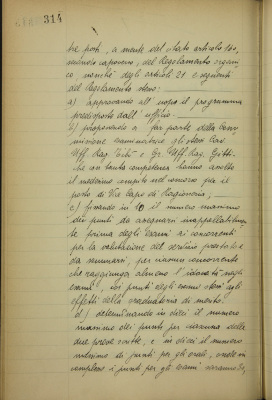 314
tre posti, a mente del citato articolo 100,
secondo capoverso, del Regolamento organi-
co nonché degli articoli 21 e seguenti
del Regolamento stesso:
a) approvando all'uopo il programma
predisposto dall'ufficio
b) proponendo a far parte della Com-
missione esaminatrice gli stessi Cav.
Uff. Rag. e Gr. Uff. Rag.
che con tanta competenza hanno assolto
il medesimo compito nel concorso per il
posto di Capo di Ragioneria;
c) fissando in 10 il numero massimo
dei punti da assegnarsi
prima degli esami ai concorrenti
per la valutazione del servizio prestato e
da sommarsi, per ciascun concorrente
che raggiunga almeno l'idoneità negli
esami, coi punti degli esami stessi agli
effetti della graduatoria di merito.
d) determinando in dieci il numero
massimo dei punti per ciascuna delle
due prove scritte, e in dieci il numero
massimo di punti per gli orali, onde in
complesso i punti per gli esami saranno